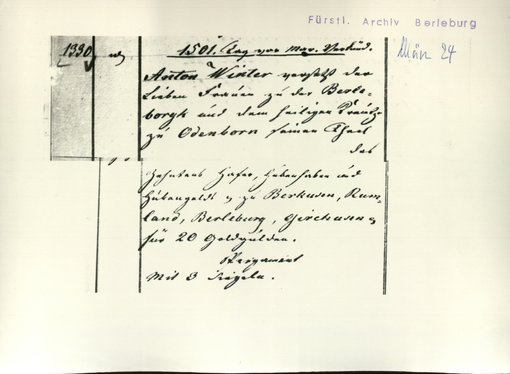 Fürstl. Archiv Berleburg
März 24
1330
1501. Tag vor Mar. Verkünd.
Anton Winter versetzt der
Lieben Frauen zu der Berle-
borgk und dem heiligen Kreutze
zu Odenborn seinen Theil
des
Zehntens Hafer, Hübenhaben und
Hübengelds zu Berkusen, Rum-
land, Berleburg, Girkusen
für 20 Goldgulden.
Pergament
Mit 3 Siegeln.